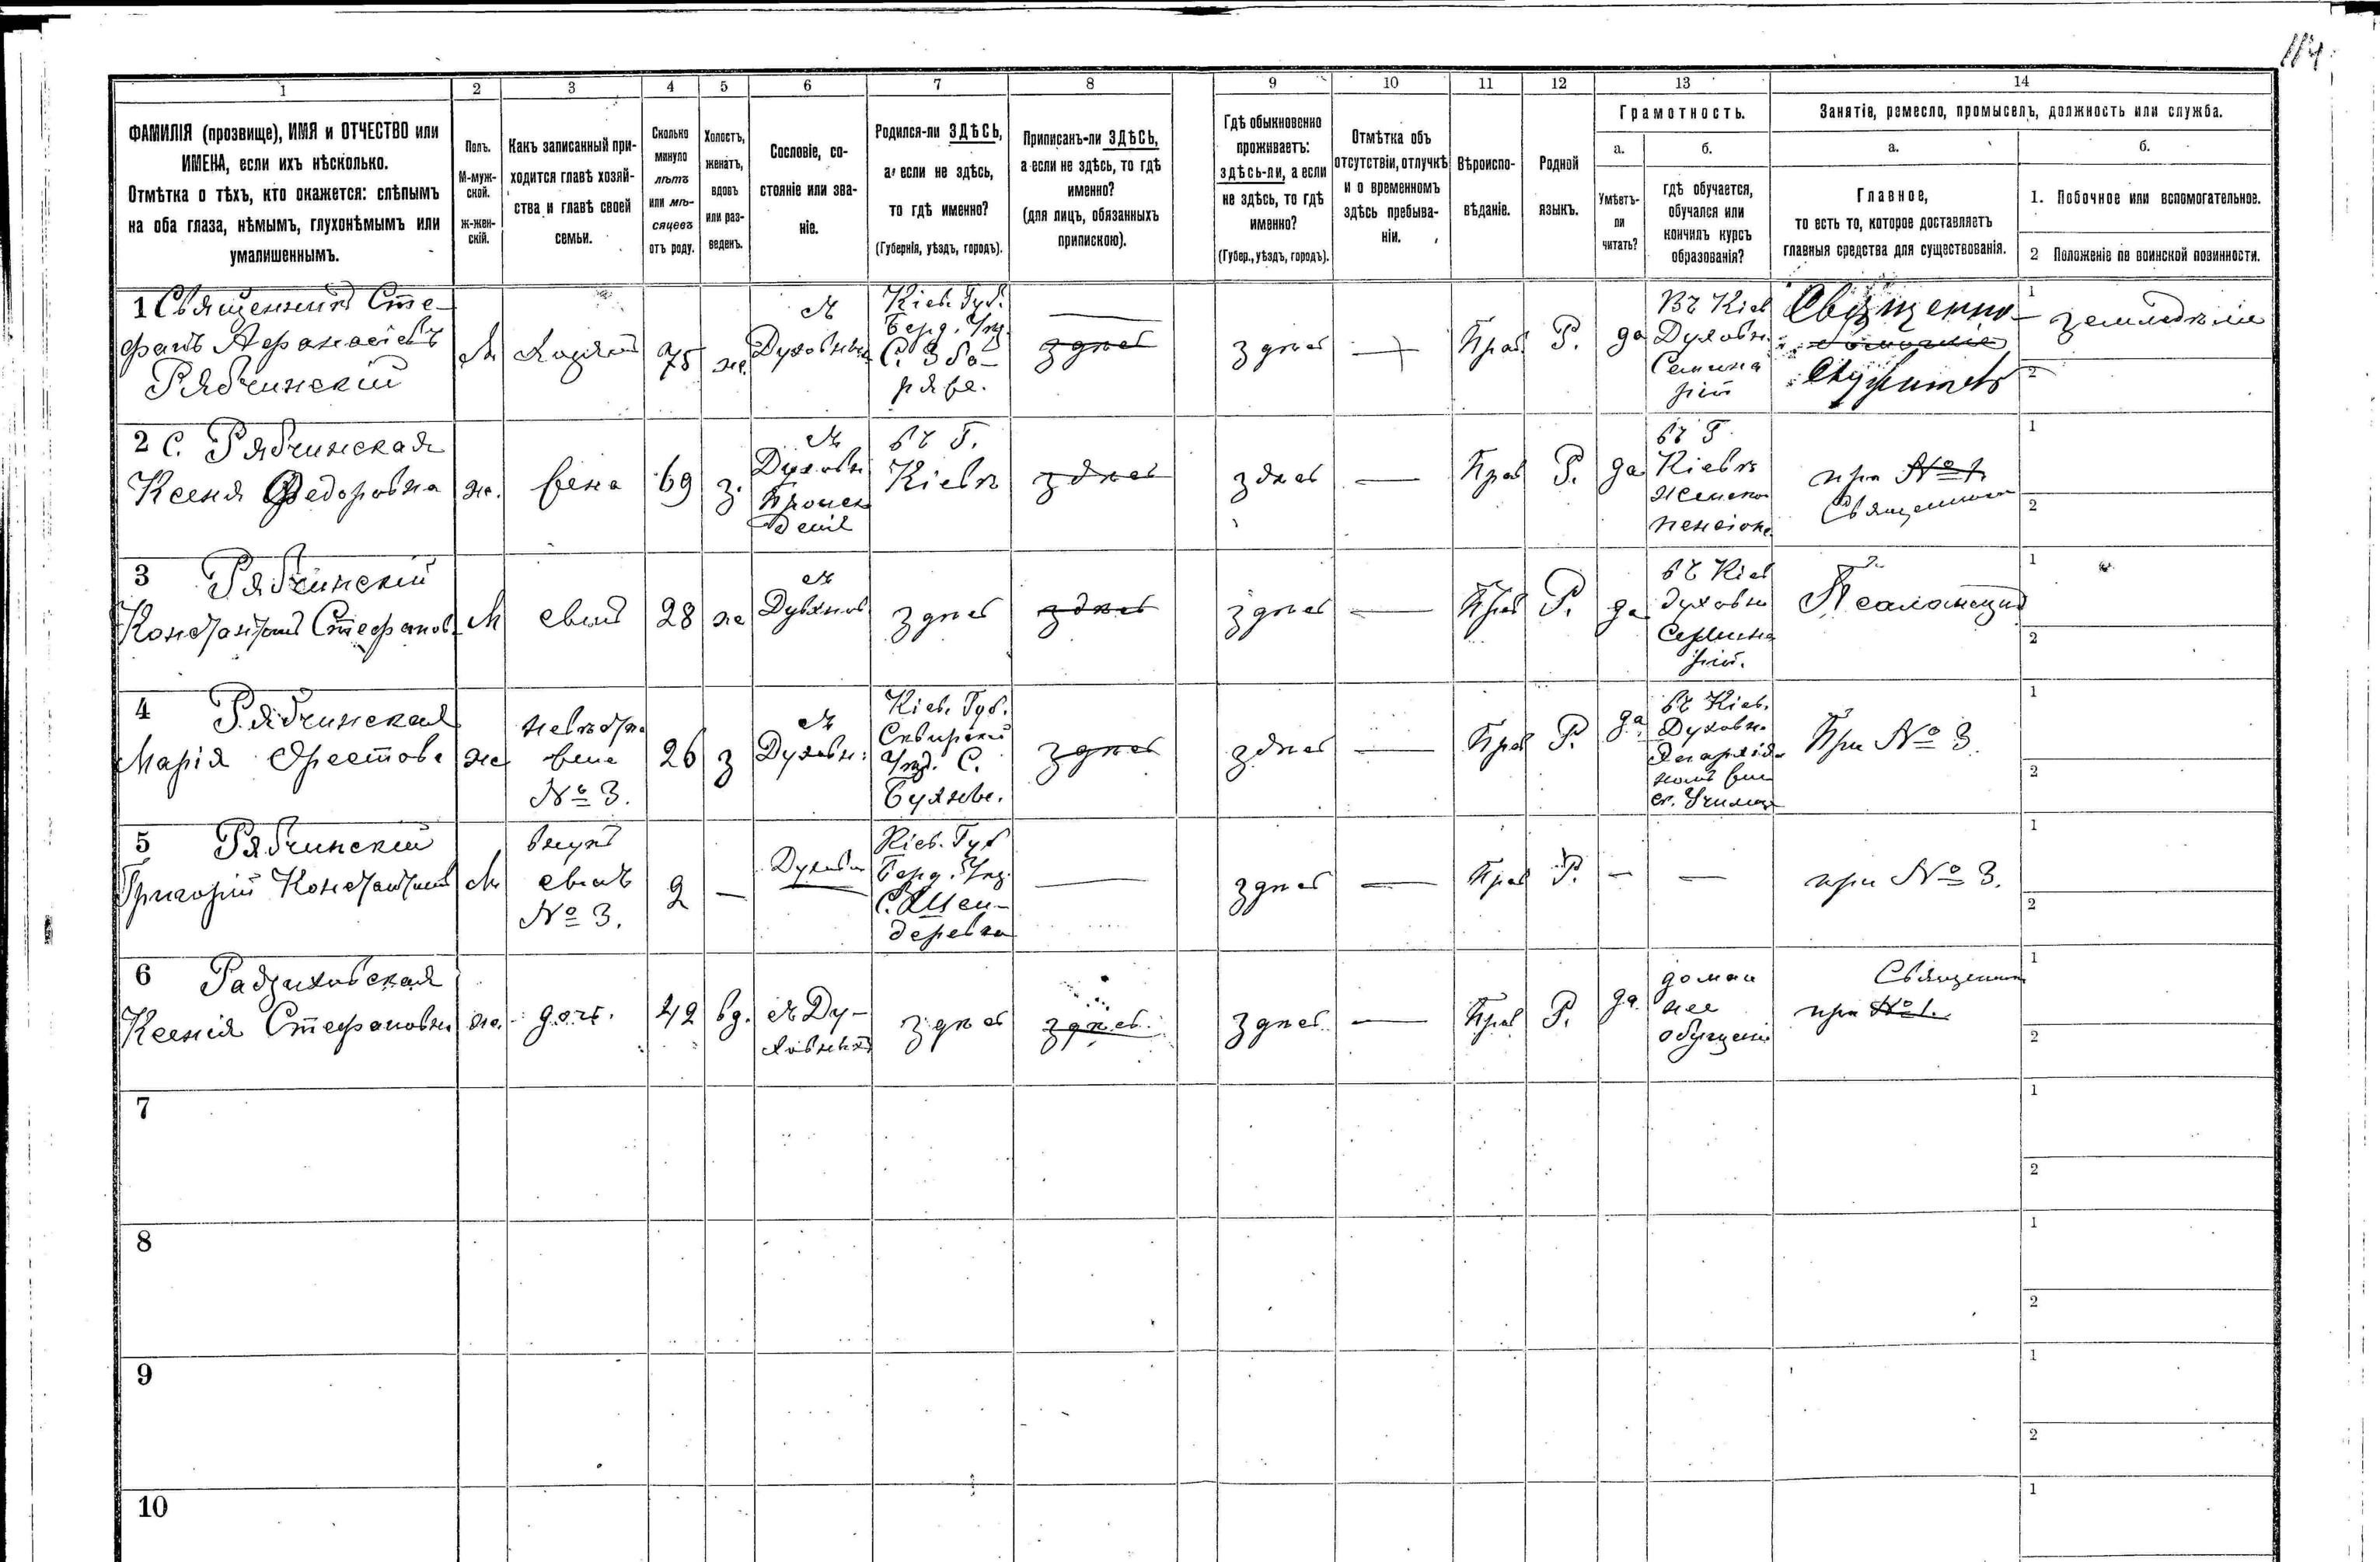 114
1 2 3 4 5 6 7 8 9 10 11 12 13 14
ФАМИЛІЯ (прозвище), ИМЯ и ОТЧЕСТВО или
ИМЕНА, если ихъ нѣсколько.
Отмѣтка о тѣхъ, кто окажется: слѣпымъ
на оба глаза, нѣмымъ, глухонѣмымъ или
умалишеннымъ.
Полъ.
М-муж-
ской.
ж-жен-
скій.
Какъ записанный при-
ходится главѣ хозяй-
ства и главѣ своей
семьи.
Сколько
минуло
лѣтъ
или мѣ-
сяцевъ
отъ роду.
Холостъ,
женатъ,
вдовъ
или раз-
веденъ.
Сословіе, со-
стояніе или зва-
ніе.
Родился-ли ЗДѢСЬ,
а если не здѣсь,
то гдѣ именно?
(Губернія, уѣздъ, городъ).
Приписанъ-ли ЗДѢСЬ,
а если не здѣсь, то гдѣ
именно?
(для лицъ, обязанныхъ
припискою).
Гдѣ обыкновенно
проживаетъ:
здѣсь-ли, а если
не здѣсь, то гдѣ
именно?
(Губер., уѣздъ, городъ).
Отмѣтка объ
отсутствіи, отлучкѣ
и о временномъ
здѣсь пребыва-
ніи.
Вѣроиспо-
вѣданіе.
Родной
языкъ.
Грамотность.
а.
Умѣетъ-
ли
читать?
б.
гдѣ обучается,
обучался или
кончилъ курсъ
образованія?
Занятія, ремесло, промыселъ, должность или служба.
а.
Главное,
то есть то, которое доставляетъ
главныя средства для существованія.
б.
1. Побочное или вспомогательное.
2 Положеніе по воинской повинности.
1 Священникъ Сте-
фанъ Афанасіевъ
Рябчинскій
М
Хозяинъ
75
же.
Духовнаго
Кіев. Губ.
Берд. Уѣз.
С. Збо-
здѣсь
здѣсь
Прав.
Р.
да
Въ Кіев
Духовн.
Семина
ріи
Священно-
служитель
земледѣліе
1
2
2 С. Рябчинская
Ксенія Федоровна
же.
жена
69
з.
Духовн
Происх
денія
въ Г.
Кіевѣ
здѣсь
здѣсь
Прав
Р.
да
въ Г.
Кіевѣ
женском
пансіоне
при № 1.
Священникѣ
1
2
3 Рябчинскій
Константинъ Стефанов.
М
сынъ
28
же
Духовнаго
здѣсь
здѣсь
здѣсь
Прав
Р.
да
въ Кіев
духовн
Семина
ріи.
Псаломщикъ
1
2
4 Рябчинская
Марія Орестовна
же
невѣстка
жена
№ 3.
26
з
Духовн.
Кіев. Губ.
Сквирскій
Уѣзд. С.
здѣсь
здѣсь
Прав
Р.
да
въ Кіев.
Духовн.
При № 3.
1
2
5 Рябчинскій
Григорій Константинов
М
внукъ
сынъ
№ 3.
2
Духовн
Кіев. Губ
Берд. Уѣз.
С. Шен-
деревка
здѣсь
Прав
Р.
при № 3.
1
2
6 Радзиховская
Ксенія Стефановна
же.
дочь.
42
вд.
Ду-
ховнаго
здѣсь
здѣсь
здѣсь
Прав
Р.
да
домаш
нее
обученіе
Священник
при № 1.
1
2
7
1
2
8
1
2
9
1
2
10
1